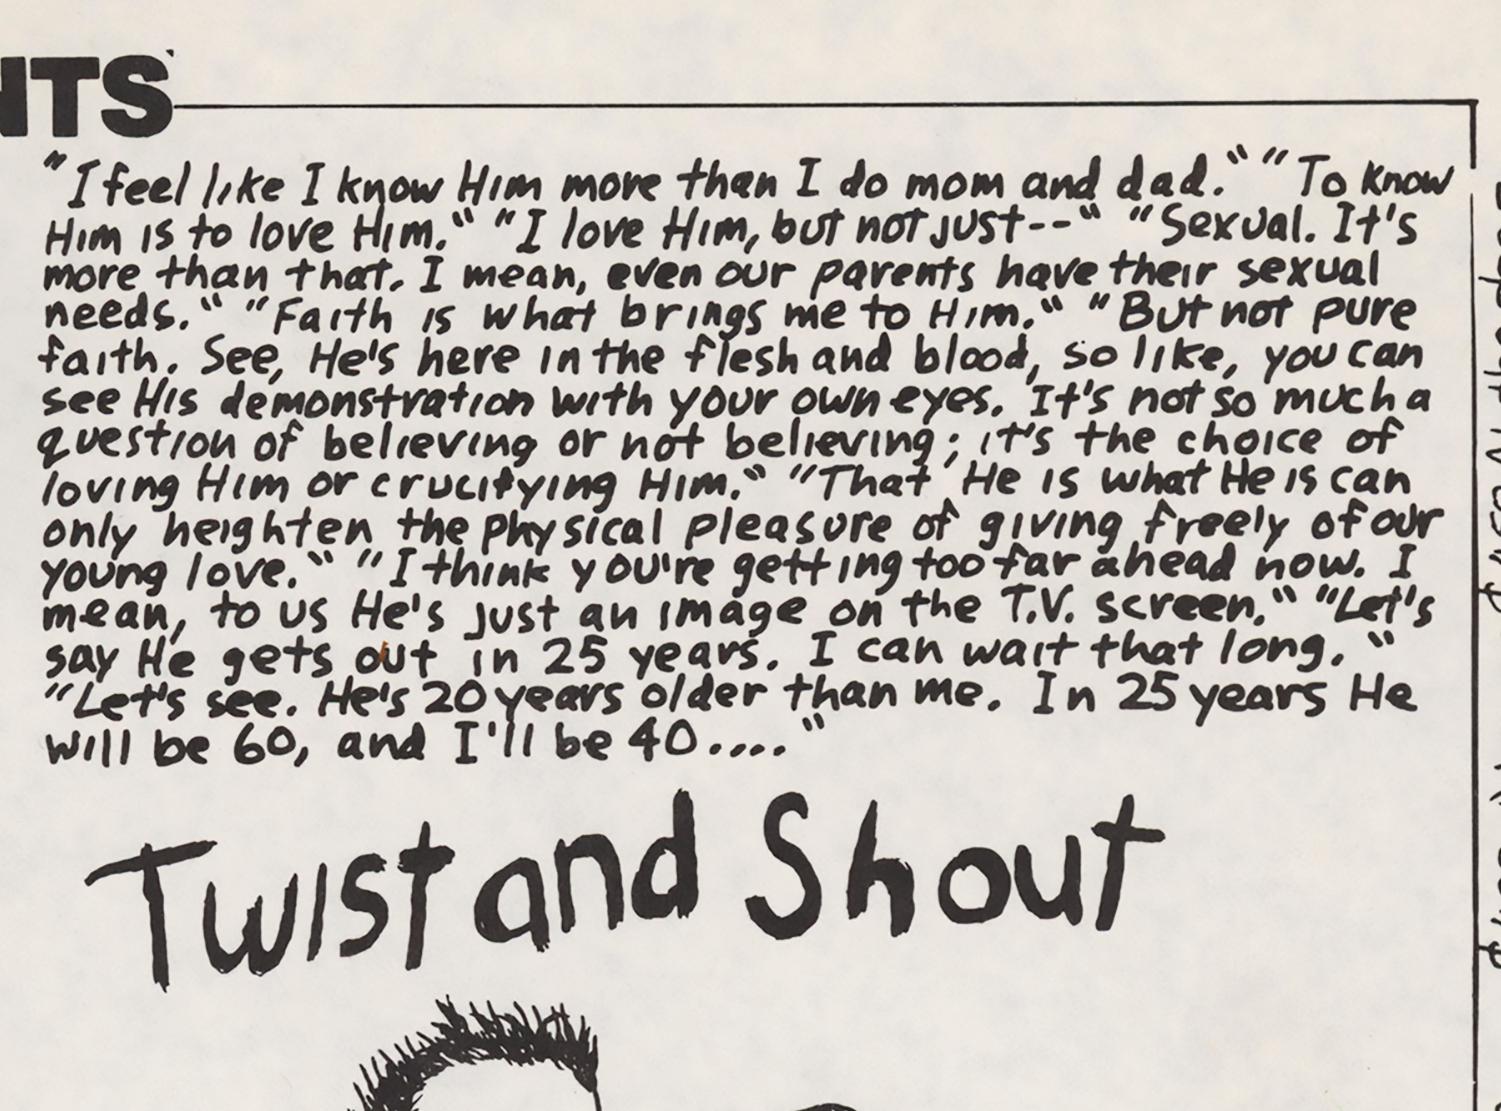 NTS
"I feel like I know Him more than I do mom and dad." "To know
Him is to love Him." "I love Him, but not just--" "Sexual. It's
more than that. I mean, even our parents have their sexual
needs." "Faith is what brings me to Him." "But not pure
faith. See, He's here in the flesh and blood, so like, you can
see His demonstration with your own eyes. It's not so much a
question of believing or not believing; it's the choice of
loving Him or crucifying Him." "That He is what He is can
only heighten the physical pleasure of giving freely of our
young love." "I think you're getting too far ahead now. I
mean, to us He's just an image on the T.V. screen." "Let's
say He gets out in 25 years. I can wait that long."
"Let's see. He's 20 years older than me. In 25 years He
will be 60, and I'll be 40...."
Twist and Shout